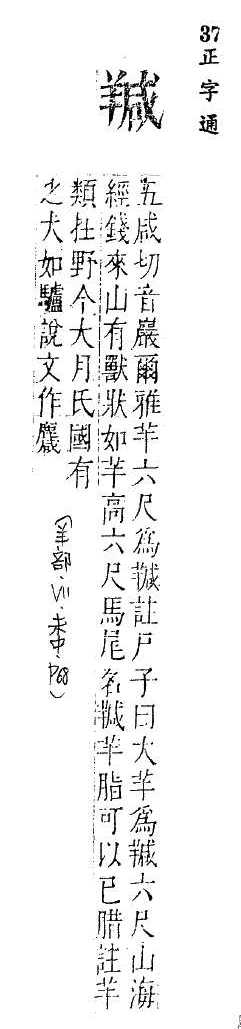 37 正字通
羬
五咸切音巖爾雅羊六尺爲羬註尸子曰大羊爲羬六尺山海
經錢來山有獸狀如羊高六尺馬尾名羬羊脂可以已腊註羊
類在野今大月氏國有
之大如驢說文作麙
(羊部·VII·未中·P68)